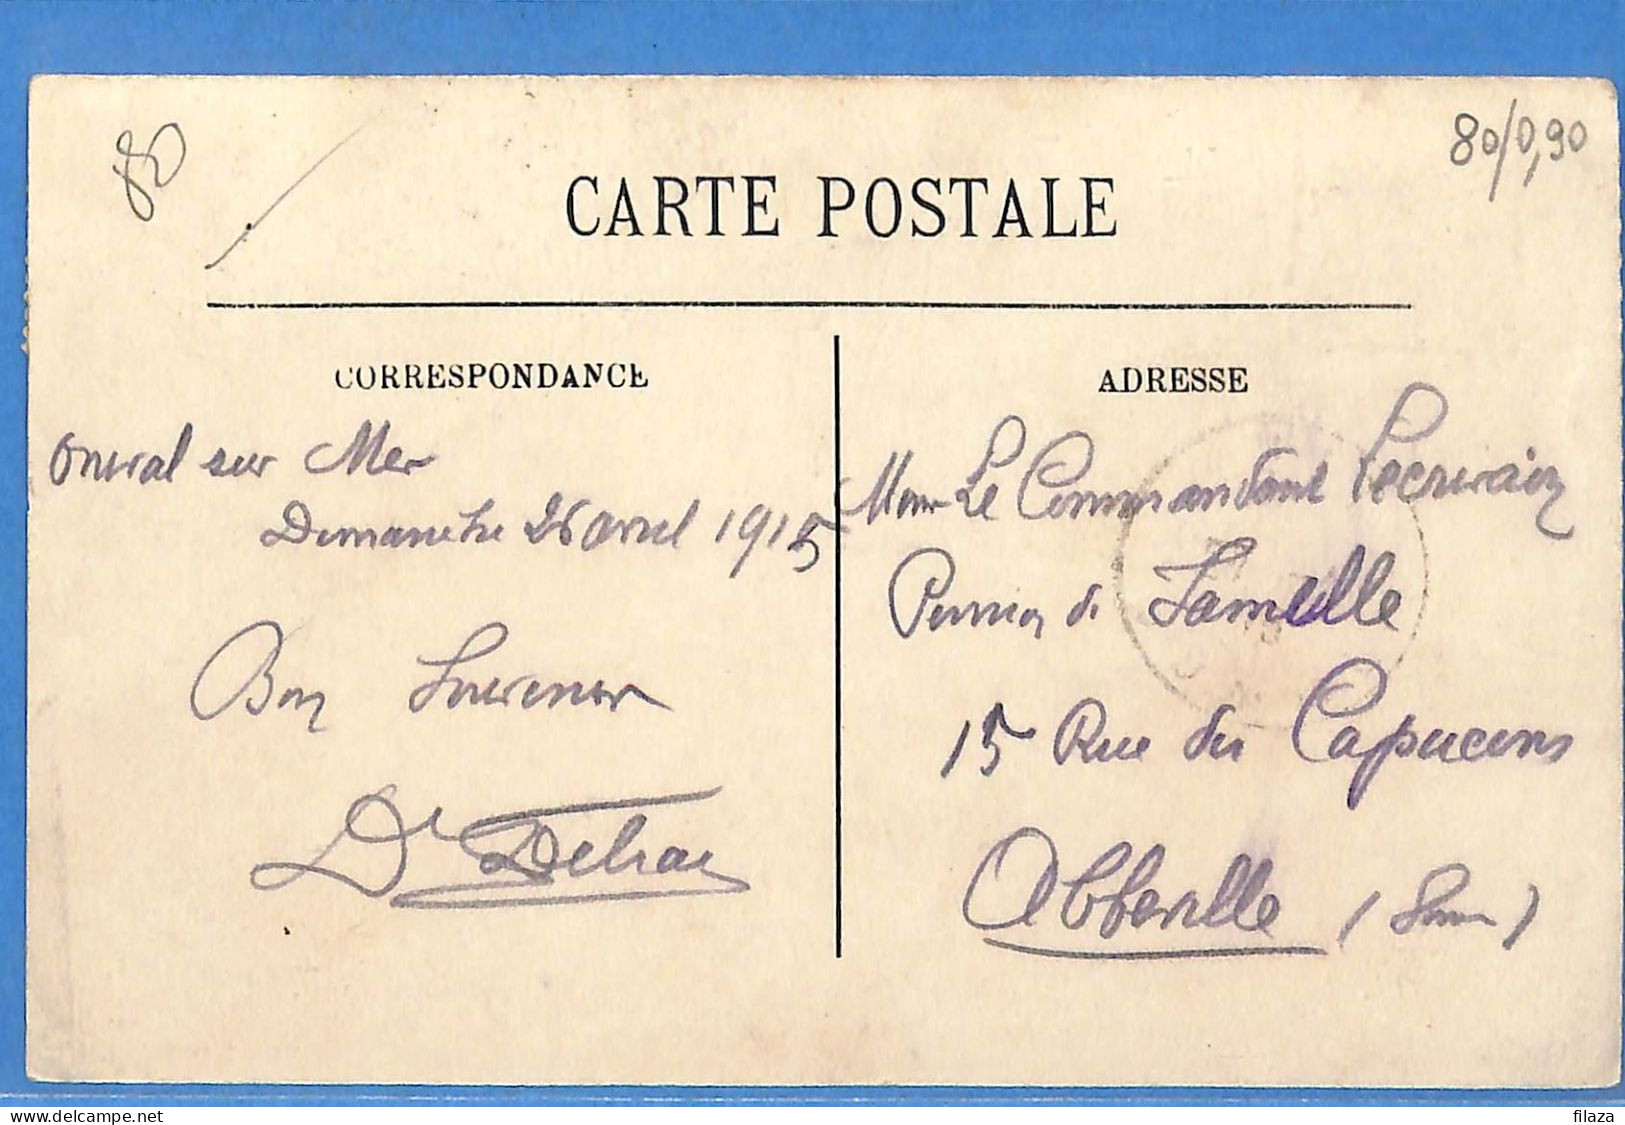 80/0,90
CARTE POSTALE
CORRESPONDANCE
Onival sur Mer
Dimanche 26 avril 1915
Bon Souvenir
Dr Delrae
ADRESSE
Mon Le Commandant Lecrivain
Pension de Famille
15 Rue des Capucins
Abbeville (Somme)
filaza
delcampe.net